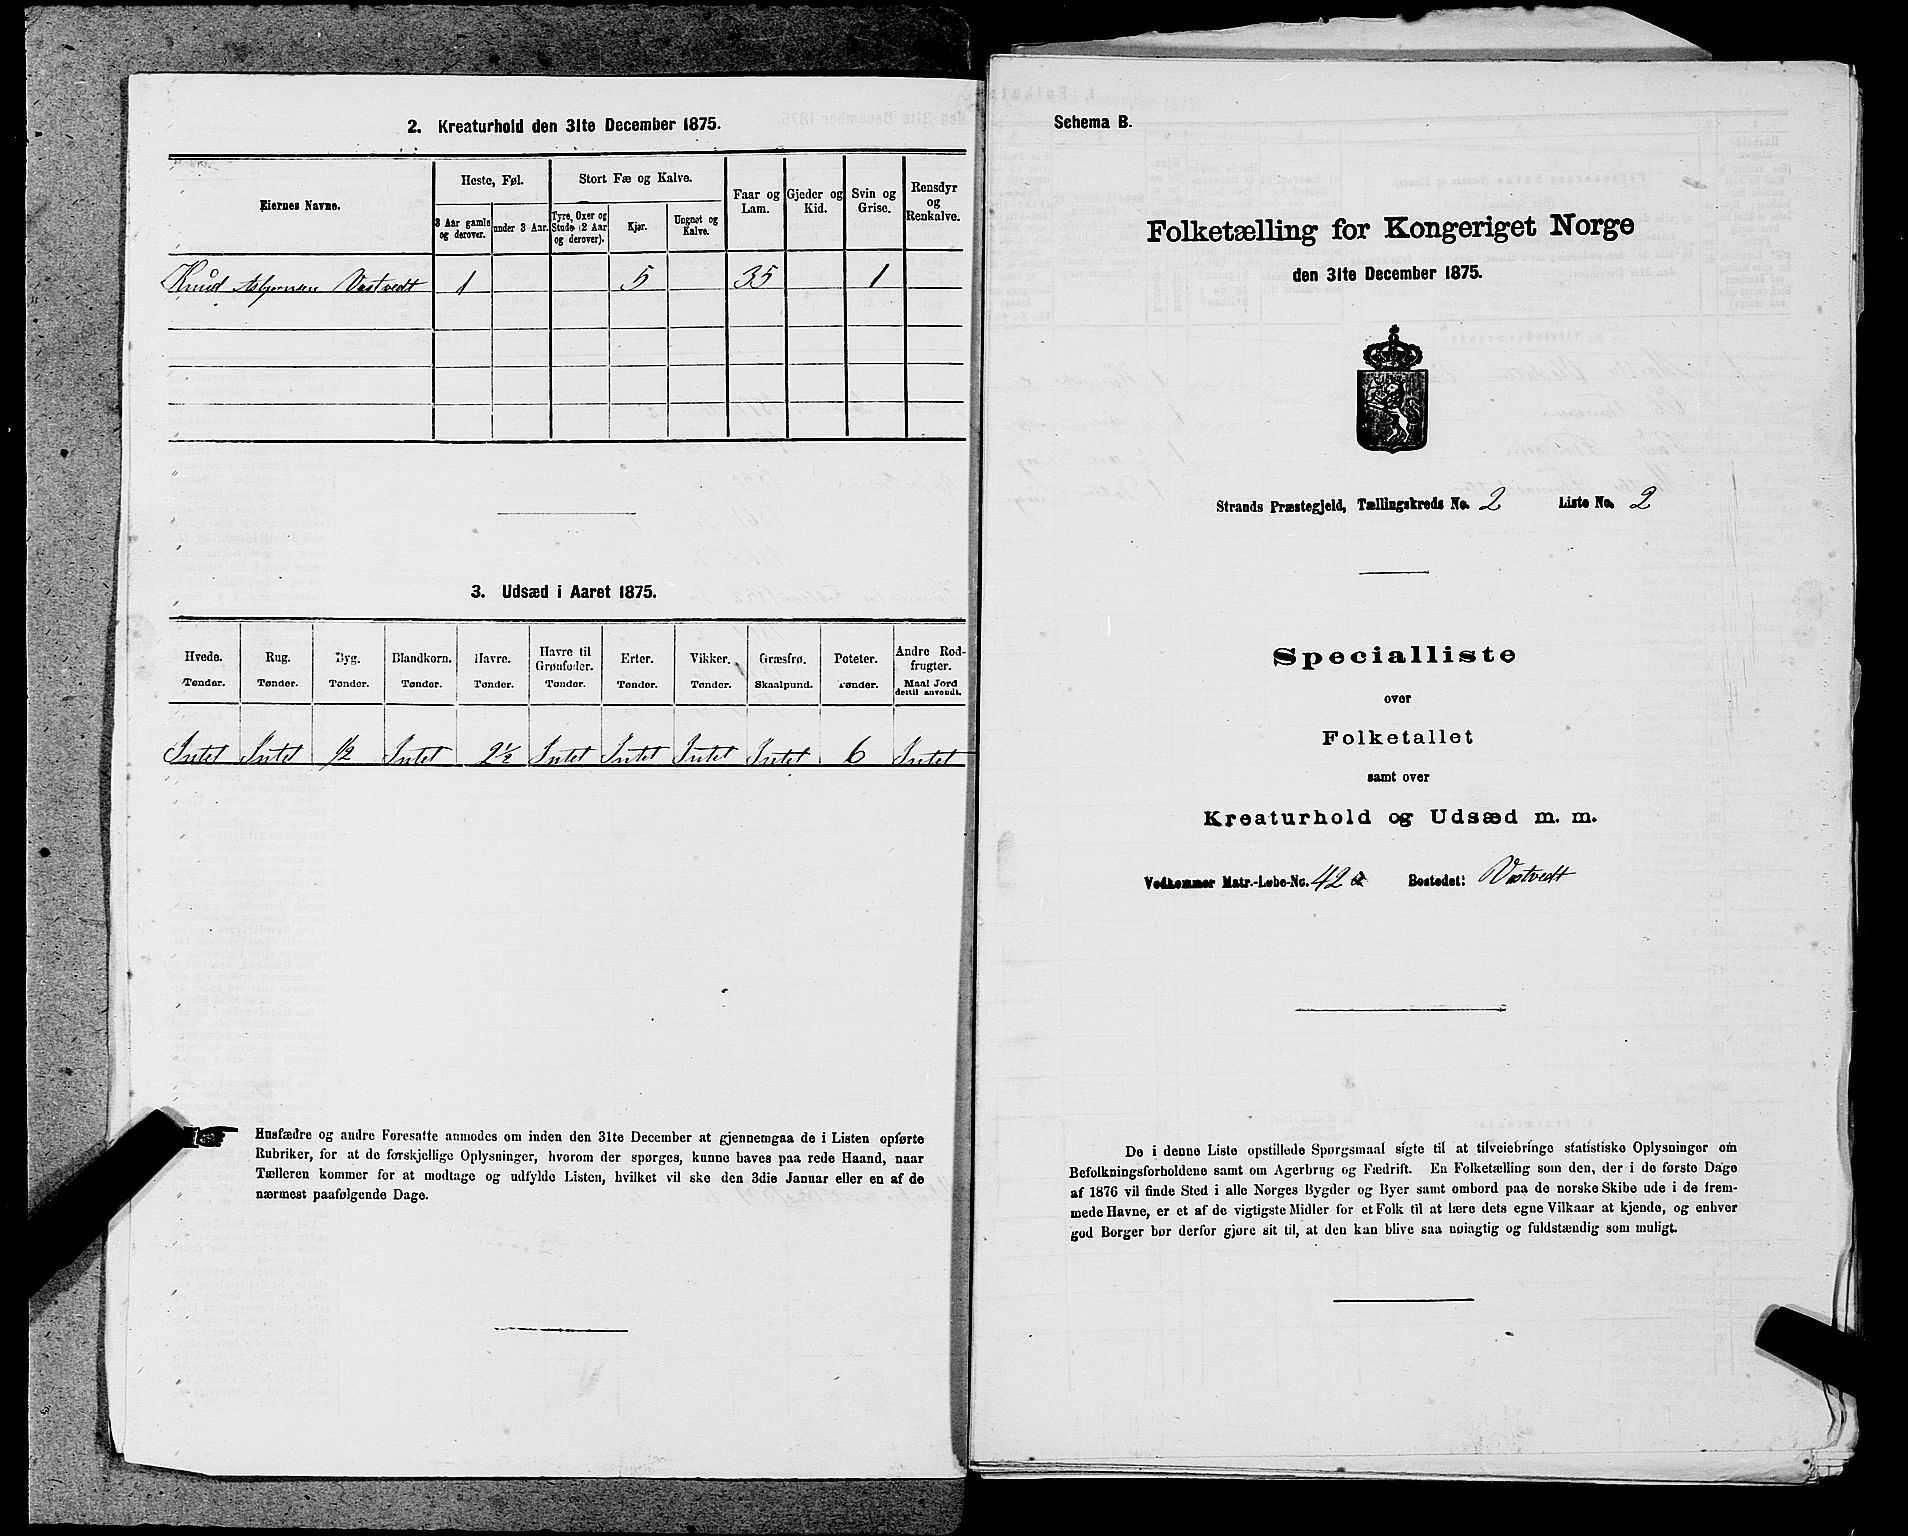 2. Kreaturhold den 31te December 1875.
Eiernes Navne.
Heste, Føl.
Stort Fæ og Kalve.
Faar og Lam.
Gjeder og Kid.
Svin og Grise.
Rensdyr og Renkalve.
3 Aar gamle og derover.
under 3 Aar.
Tyre, Oxer og Stude (2 Aar og derover).
Kjør.
Ungnøt og Kalve.
Knud Asbjørnsen Vastvedt 1 5 35 1
3. Udsæd i Aaret 1875.
Hvede. Rug. Byg. Blandkorn. Havre. Havre til Grønfoder. Erter. Vikker. Græsfrø. Poteter. Andre Rodfrugter.
Tønder. Tønder. Tønder. Tønder. Tønder. Tønder. Tønder. Tønder. Skaalpund. Tønder. Maal Jord dertil anvendt.
Intet Intet 1/2 Intet 2 1/2 Intet Intet Intet Intet 6 Intet
Husfædre og andre Foresatte anmodes om inden den 31te December at gjennemgaa de i Listen opførte
Rubriker, for at de forskjellige Oplysninger, hvorom der spørges, kunne haves paa rede Haand, naar
Tælleren kommer for at modtage og udfylde Listen, hvilket vil ske den 3die Januar eller en af de
nærmest paafølgende Dage.
Schema B.
Folketælling for Kongeriget Norge
den 31te December 1875.
Strands Præstegjeld, Tællingskreds No. 2 Liste No. 2
Specialliste
over
Folketallet
samt over
Kreaturhold og Udsæd m. m.
Vedkommer Matr.-Løbe-No. 42a Bostedet: Vastvedt
De i denne Liste opstillede Spørgsmaal sigte til at tilveiebringe statistiske Oplysninger om
Befolkningsforholdene samt om Agerbrug og Fædrift. En Folketælling som den, der i de første Dage
af 1876 vil finde Sted i alle Norges Bygder og Byer samt ombord paa de norske Skibe ude i de frem-
mede Havne, er et af de vigtigste Midler for et Folk til at lære dets egne Vilkaar at kjende, og enhver
god Borger bør derfor gjøre sit til, at den kan blive saa nøiagtig og fuldstændig som muligt.